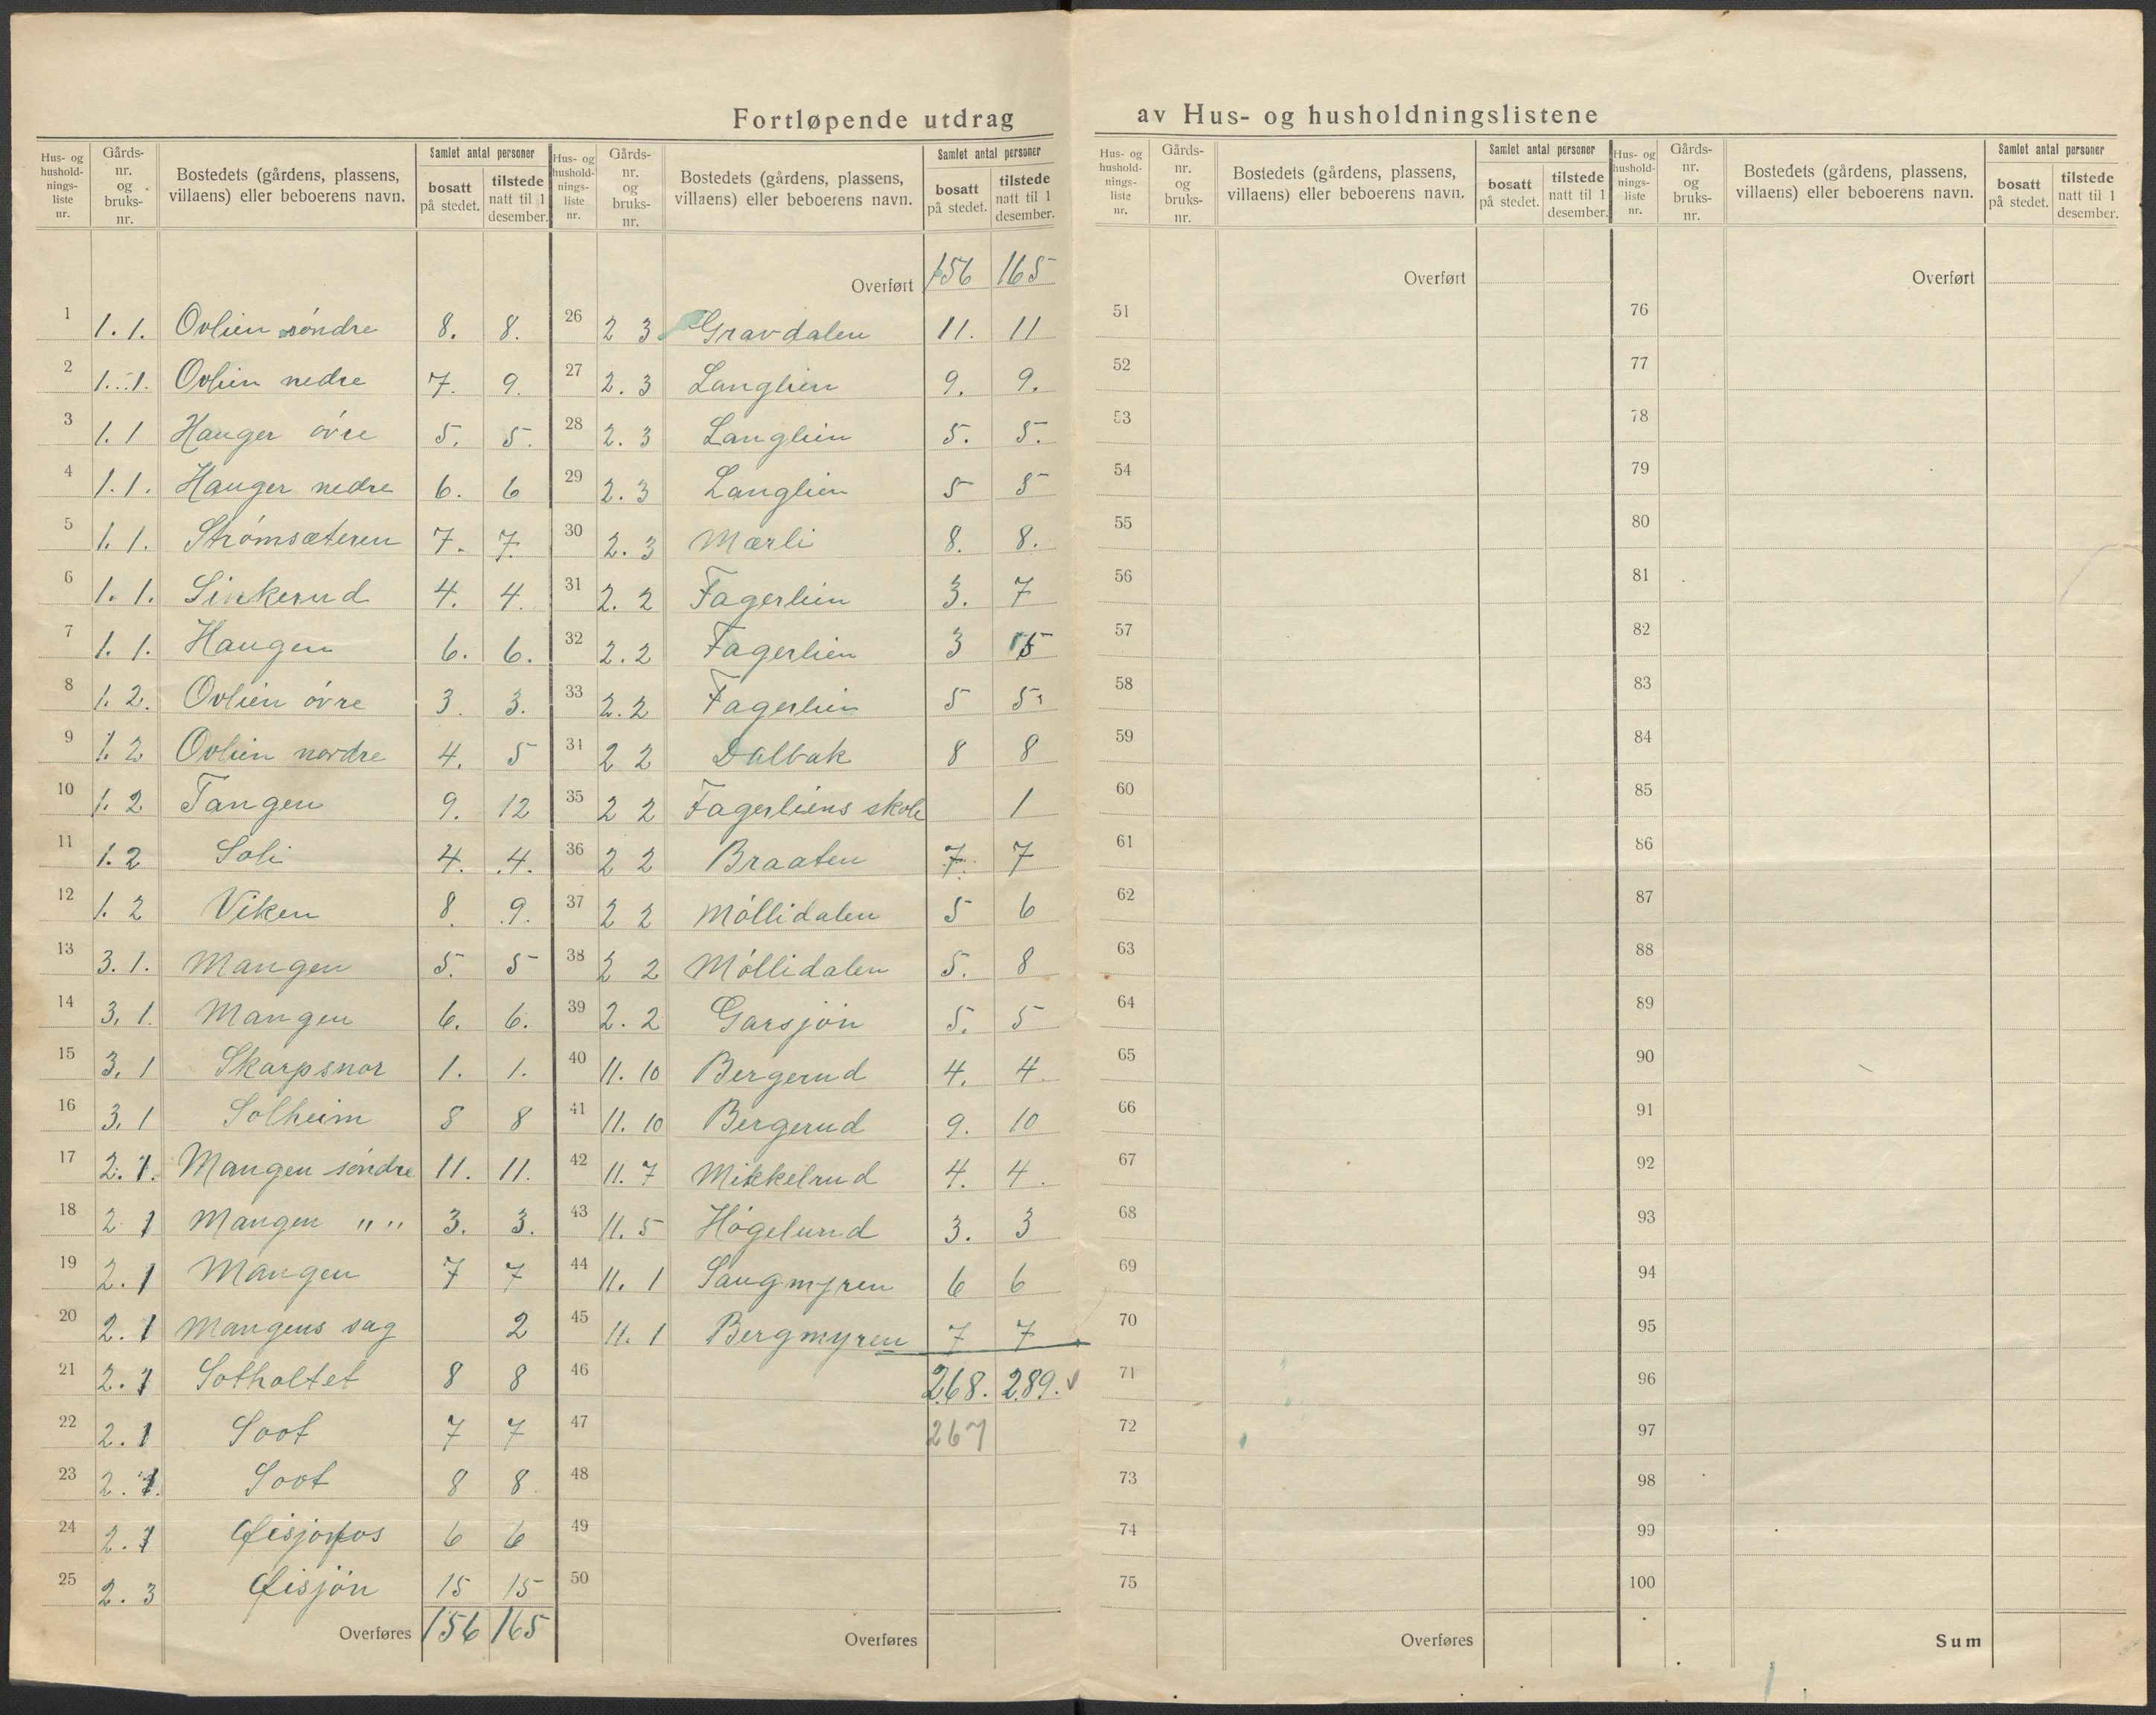 Fortløpende utdrag av Hus- og husholdningslistene
Hus- og hushold-nings-liste nr. Gårds-nr. og bruks-nr. Bostedets (gårdens, plassens, villaens) eller beboerens navn. Samlet antal personer bosatt på stedet. tilstede natt til 1 desember.
1 1. 1. Ovlien søndre 8. 8.
2 1. 1. Ovlien nedre 7. 9.
3 1. 1 Hauger øvre 5. 5.
4 1. 1. Hauger nedre 6. 6
5 1. 1. Strømsæteren 7. 7.
6 1. 1. Sinkerud 4. 4.
7 1. 1. Haugen 6. 6.
8 1. 2. Ovlien øvre 3. 3.
9 1. 2 Ovlien nordre 4. 5
10 1. 2 Tangen 9. 12
11 1. 2 Soli 4. 4.
12 1. 2 Viken 8. 9.
13 3. 1. Mangen 5. 5
14 3. 1. Mangen 6. 6.
15 3. 1 Skarpsnor 1. 1.
16 3. 1 Solheim 8 8
17 2. 1. Mangen søndre 11. 11.
18 2 1 Mangen " " 3. 3.
19 2. 1 Mangen 7 7
20 2. 1 Mangens sag 2
21 2. 1 Sotholtet 8 8
22 2. 1 Soot 7 7
23 2. 1. Soot 8 8
24 2. 1 Øisjøfos 6 6
25 2. 3 Øisjøn 15 15
Overføres 156 165
Hus- og hushold-nings-liste nr. Gårds-nr. og bruks-nr. Bostedets (gårdens, plassens, villaens) eller beboerens navn. Samlet antal personer bosatt på stedet. tilstede natt til 1 desember.
Overført 156 165
26 2 3 Gravdalen 11. 11
27 2. 3 Langlien 9. 9.
28 2. 3 Langlien 5. 5.
29 2. 3 Langlien 5 5
30 2. 3 Mærli 8. 8.
31 2. 2 Fagerlien 3. 7
32 2. 2 Fagerlien 3 5
33 2. 2 Fagerlien 5 5
34 2 2 Dalbak 8 8
35 2 2 Fagerliens skole 1
36 2 2 Braaten 7. 7
37 2 2 Møllidalen 5 6
38 2 2 Møllidalen 5. 8
39 2. 2 Garsjøn 5. 5
40 11. 10 Bergerud 4. 4.
41 11. 10 Bergerud 9. 10
42 11. 7 Mikkelrud 4. 4.
43 11. 5 Høgelund 3. 3
44 11. 1 Saugmyren 6 6
45 11. 1 Bergmyren 7 7
46 268. 289.
47 267
48
49
50
Overføres
Hus- og hushold-nings-liste nr. Gårds-nr. og bruks-nr. Bostedets (gårdens, plassens, villaens) eller beboerens navn. Samlet antal personer bosatt på stedet. tilstede natt til 1 desember.
Overført
51
52
53
54
55
56
57
58
59
60
61
62
63
64
65
66
67
68
69
70
71
72
73
74
75
Overføres
Hus- og hushold-nings-liste nr. Gårds-nr. og bruks-nr. Bostedets (gårdens, plassens, villaens) eller beboerens navn. Samlet antal personer bosatt på stedet. tilstede natt til 1 desember.
Overført
76
77
78
79
80
81
82
83
84
85
86
87
88
89
90
91
92
93
94
95
96
97
98
99
100
Sum